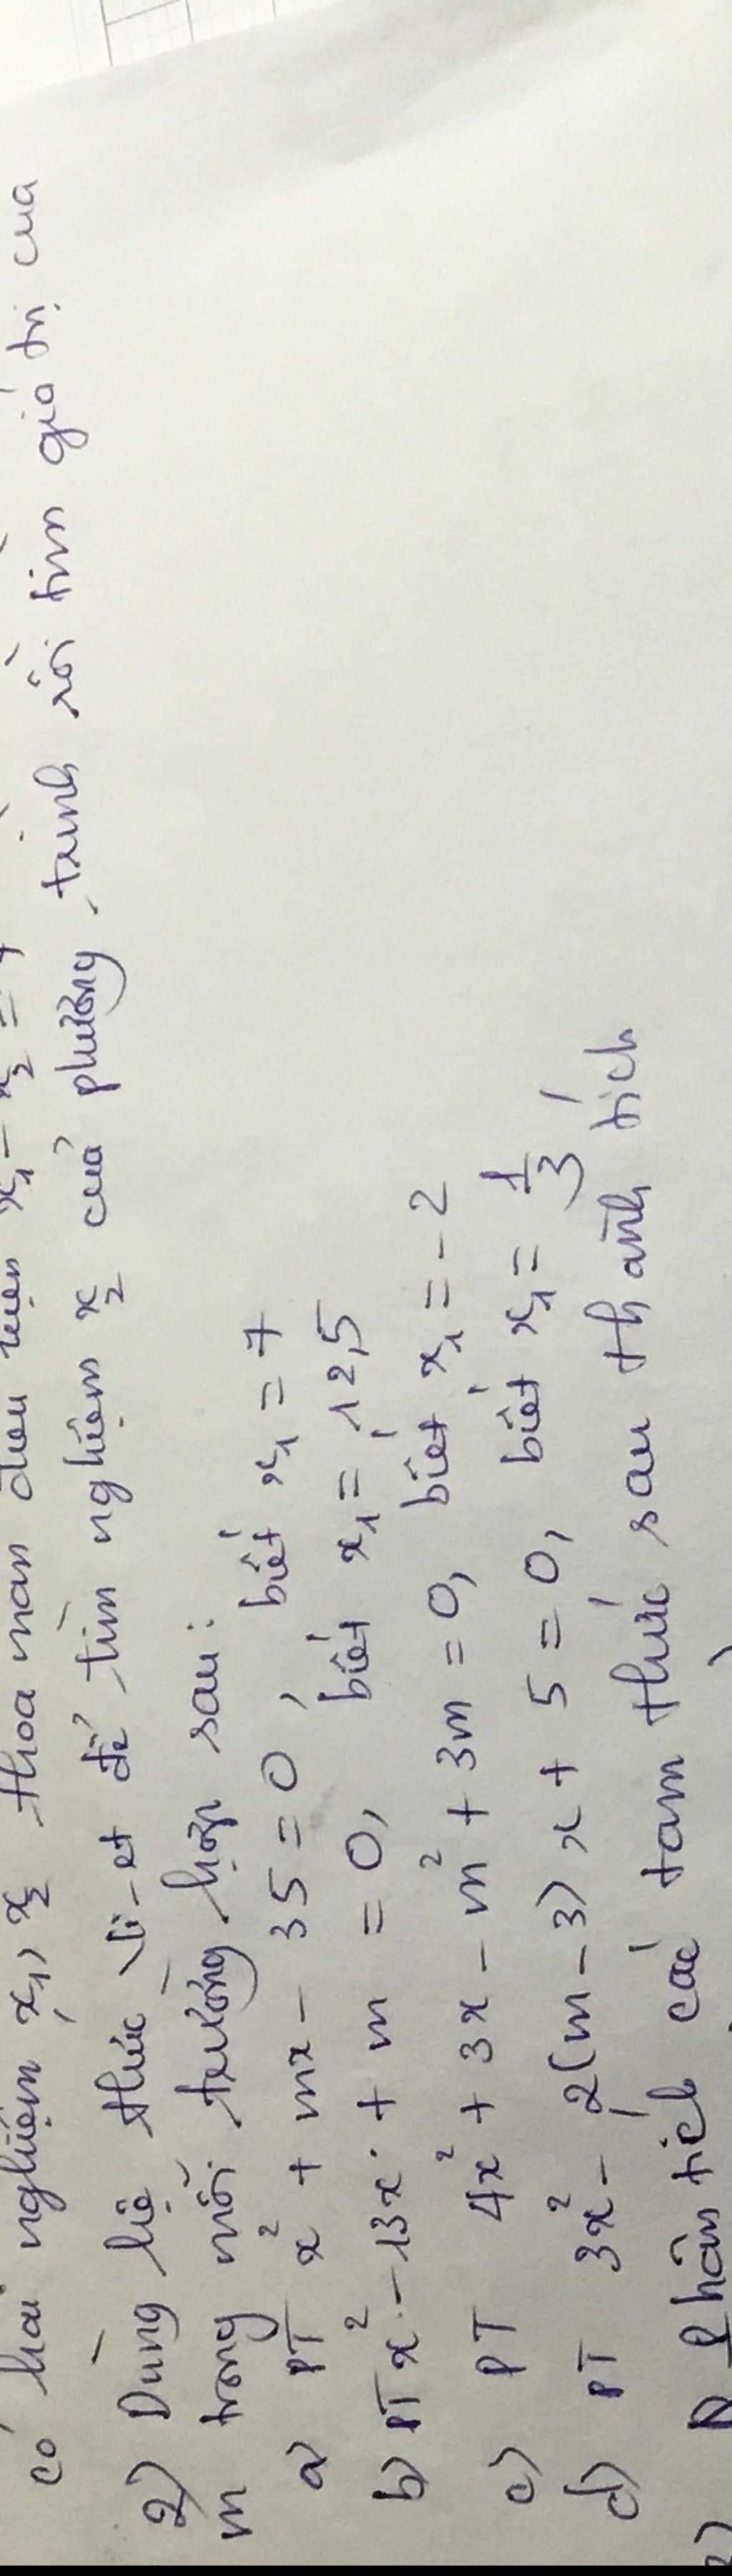 có hai nghiệm x₁, x₂ thoa man điều kiện x₁ - x₂ =
2) Dùng hệ thức Vi-et để tìm nghiệm x₂ của phương trình rồi tìm giá trị của
m trong mỗi trường hợp sau:
a) PT x² + mx - 35 = 0, biết x₁ = 7
b) PT x² - 13x + m = 0, biết x₁ = 12,5
c) PT 4x² + 3x - m² + 3m = 0, biết x₁ = -2
d) PT 3x² - 2(m-3)x + 5 = 0, biết x₁ = 1/3
Phân tích các tam thức sau thành tích